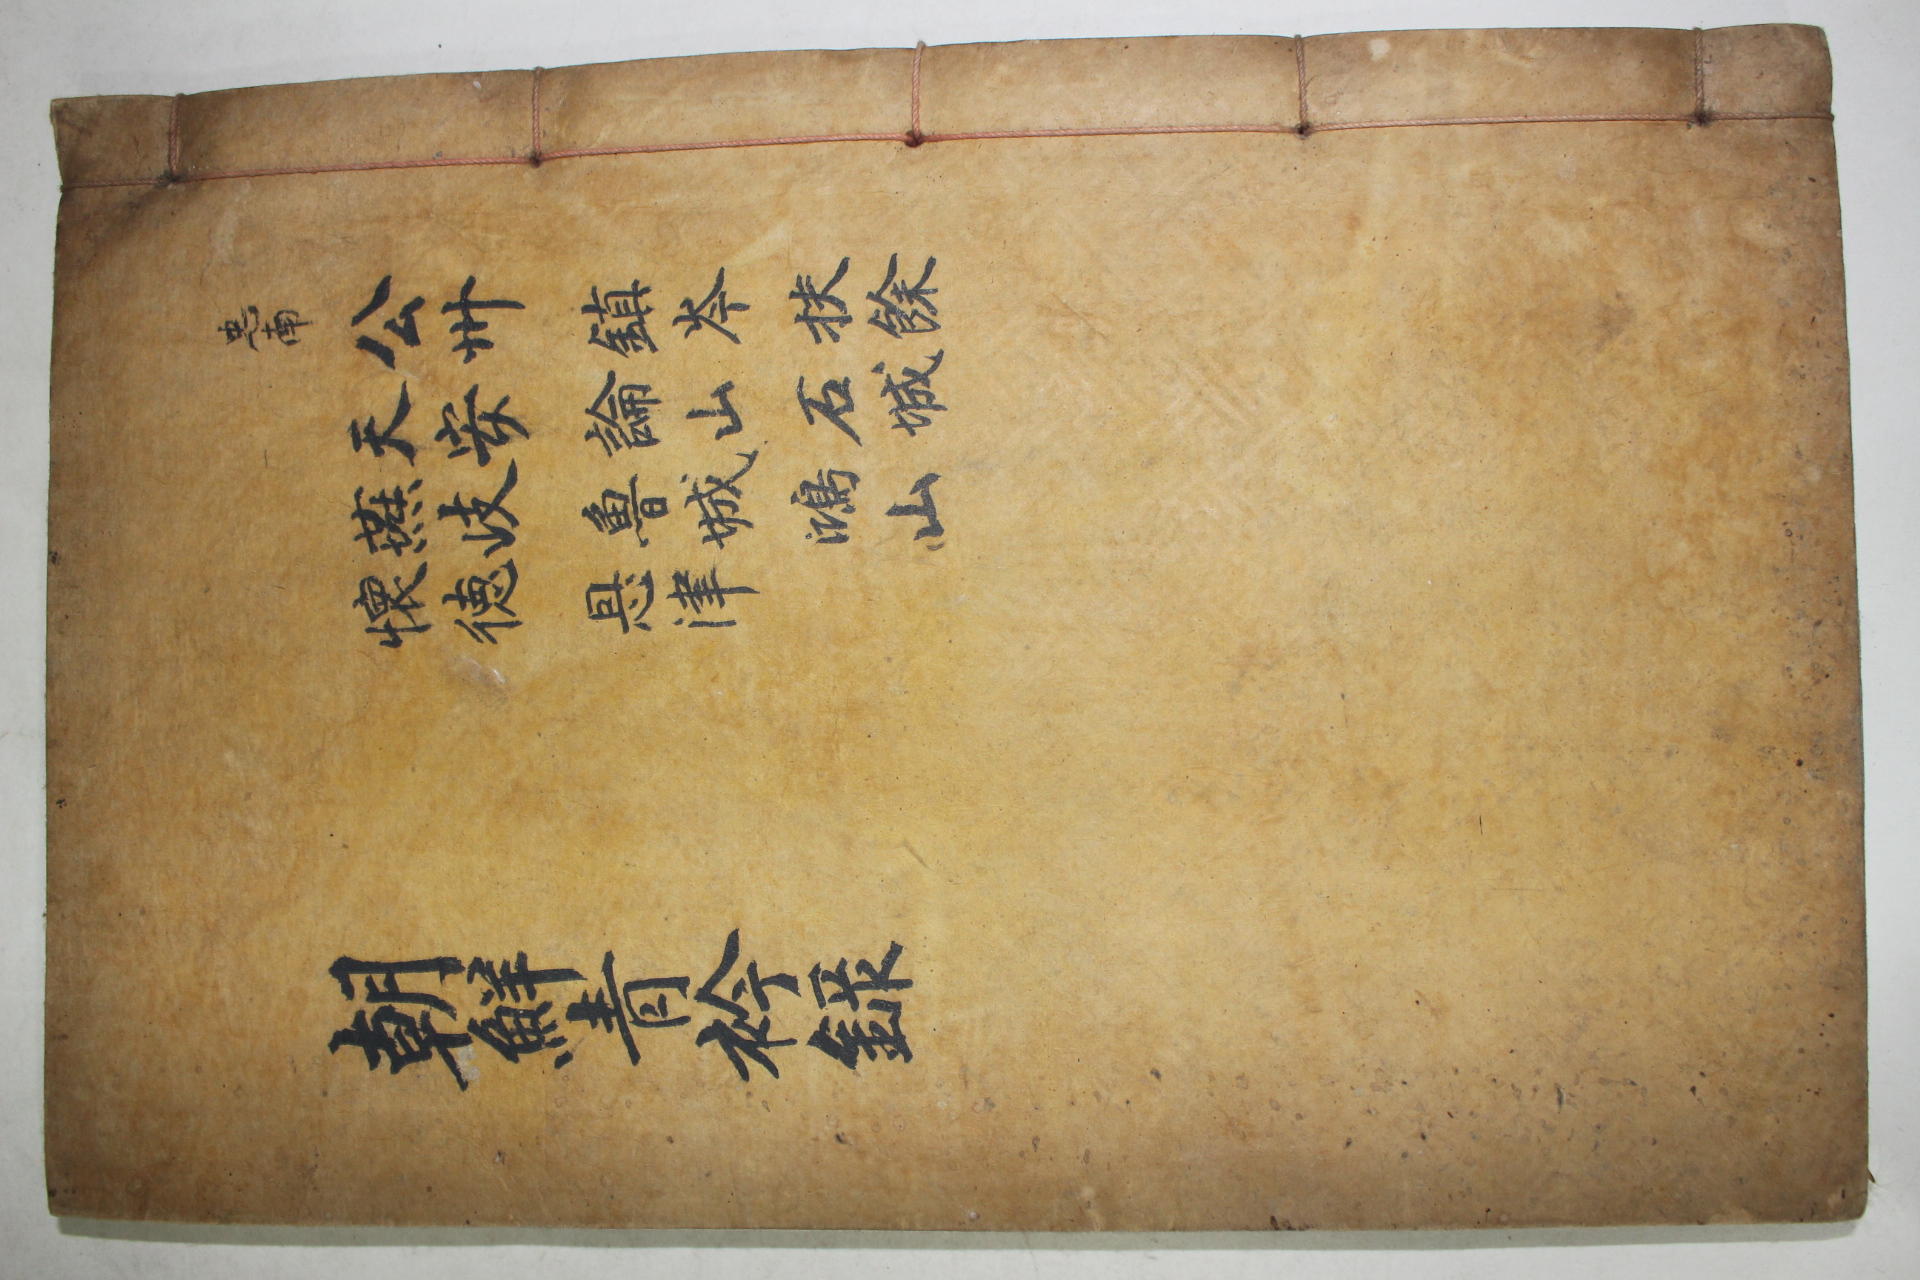 忠南
公州 鎭岑 扶餘
天安 論山 石城
燕岐 魯城 鴻山
懷德 恩津
朝鮮青衿錄